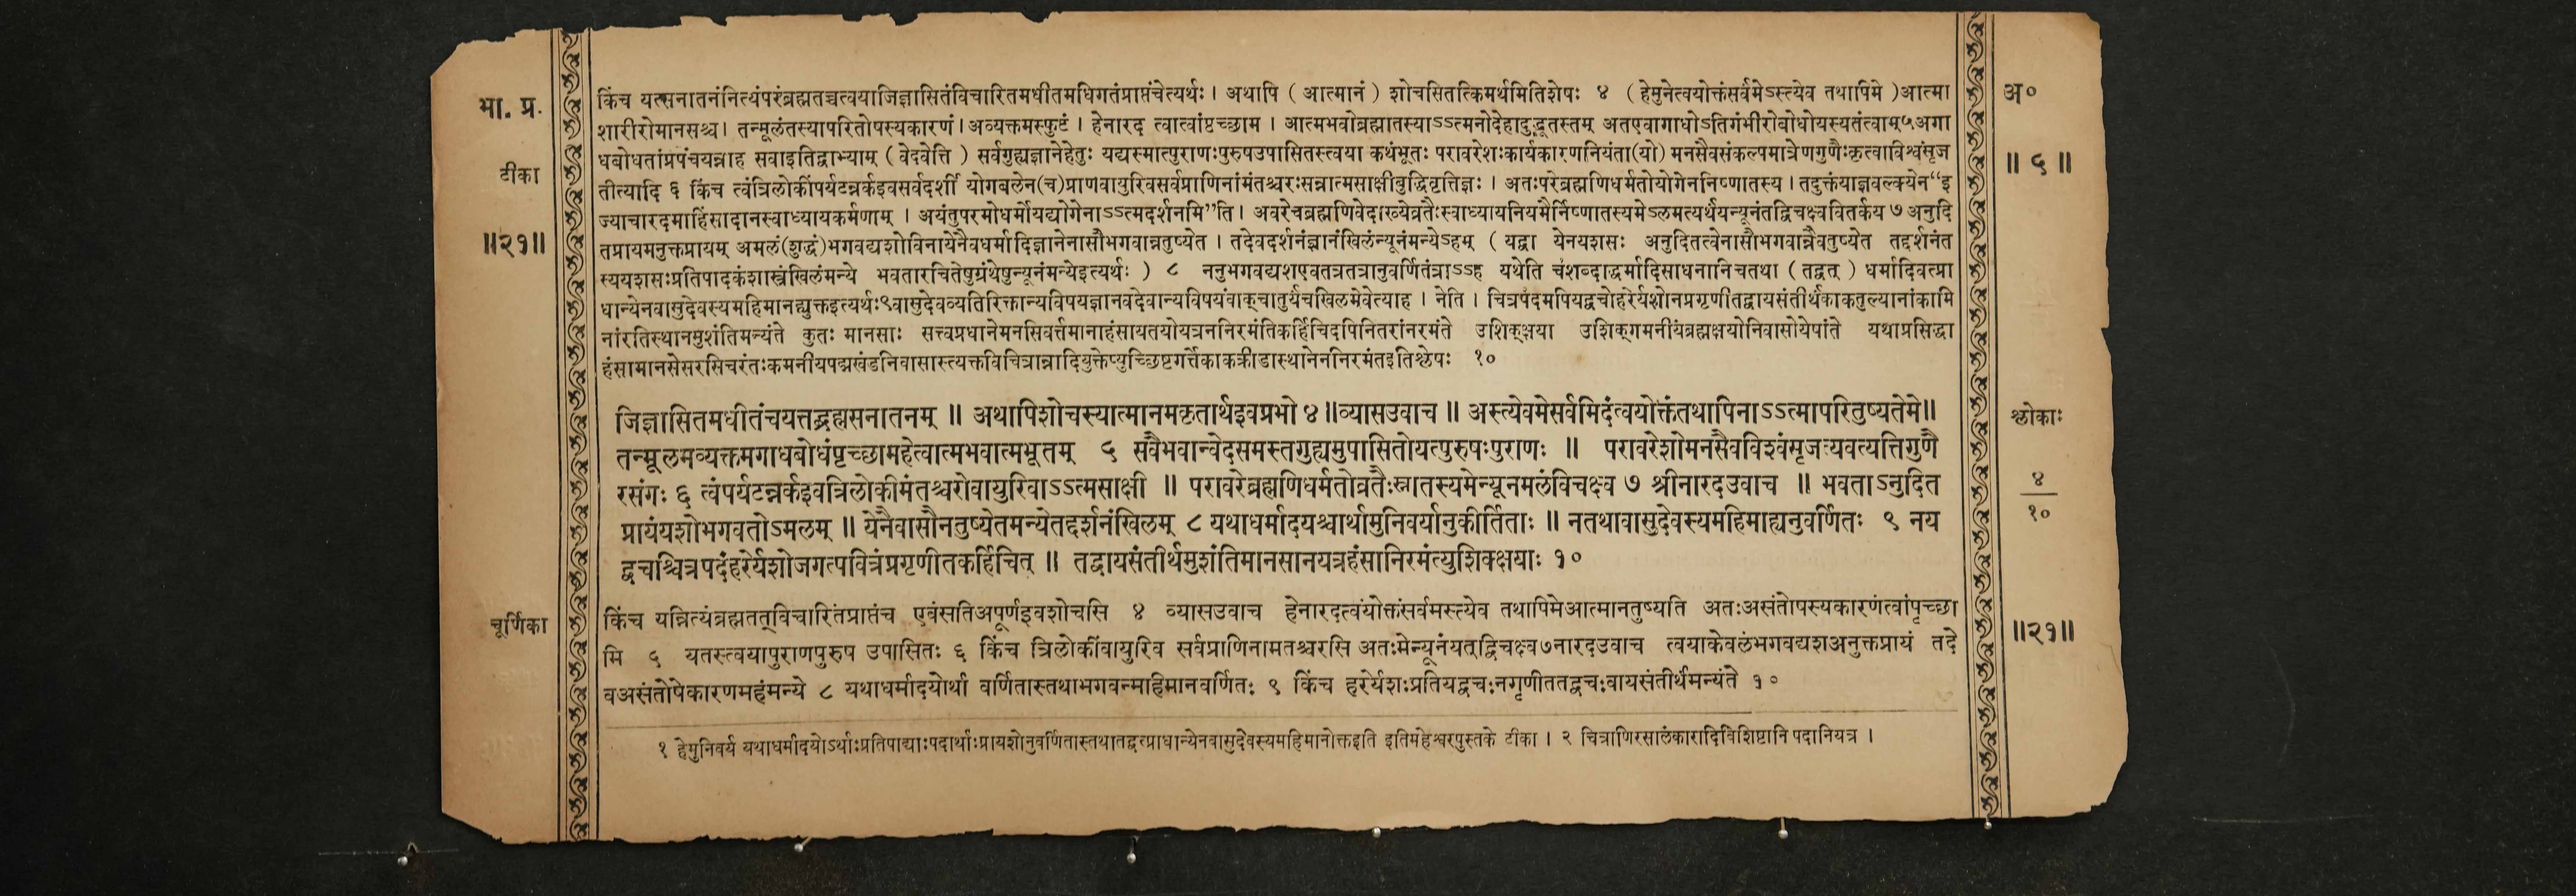 भा. प्र.
टीका
॥२१॥
किंच यत्सनातनंनित्यंपरंब्रह्मतच्चत्वयाजिज्ञासितंविचारितमधीतमधिगतंप्राप्तंचेत्यर्थः। अथापि ( आत्मानं ) शोचसितत्किमर्थमितिशेषः ४ ( हेमुनेत्वयोक्तंसर्वमेऽस्त्येव तथापिमे )आत्मा
शारीरोमानसश्च। तन्मूलंतस्यापरितोषस्यकारणं।अव्यक्तमस्फुटं । हेनारद त्वात्वांपृच्छाम । आत्मभवोब्रह्मातस्याऽऽत्मनोदेहादुद्भूतस्तम् अतएवागाधोऽतिगंभीरोबोधोयस्यतंत्वाम्५अगा
धबोधतांप्रपंचयन्नाह सवाइतिद्वाभ्याम् ( वेदवेत्ति ) सर्वगुह्यज्ञानेहेतुः यद्यस्मात्पुराणःपुरुषउपासितस्त्वया कथंभूतः परावरेशःकार्यकारणनियंता(यो) मनसैवसंकल्पमात्रेणगुणैःकृत्वाविश्वंसृज
तीत्यादि ६ किंच त्वंत्रिलोकींपर्यटन्नर्कइवसर्वदर्शी योगबलेन(च)प्राणवायुरिवसर्वप्राणिनांमंतश्चरःसन्नात्मसाक्षीबुद्धिवृत्तिज्ञः । अतःपरेब्रह्मणिधर्मतोयोगेननिष्णातस्य । तदुक्तंयाज्ञवल्क्येन“इ
ज्याचारदमाहिंसादानस्वाध्यायकर्मणाम् । अयंतुपरमोधर्मोयद्योगेनाऽऽत्मदर्शनमि”ति। अवरेचब्रह्मणिवेदाख्येव्रतैःस्वाध्यायनियमैर्निष्णातस्यमेऽलमत्यर्थंयन्न्यूनंतद्विचक्ष्ववितर्कय ७ अनुदि
तप्रायमनुक्तप्रायम् अमलं(शुद्धं)भगवद्यशोविनायेनैवधर्मादिज्ञानेनासौभगवान्नतुष्येत । तदेवदर्शनंज्ञानंखिलंन्यूनंमन्येऽहम् ( यद्वा येनयशसः अनुदितत्वेनासौभगवान्नैवतुष्येत तद्दर्शनंत
स्ययशसःप्रतिपादकंशास्त्रंखिलंमन्ये भवतारचितेषुग्रंथेषुन्यूनंमन्येइत्यर्थः ) ८ ननुभगवद्यशएवतत्रतत्रानुवर्णितंत्राऽऽह यथेति चशब्दाद्धर्मादिसाधनानिचतथा ( तद्वत् ) धर्मादिवत्प्रा
धान्येनवासुदेवस्यमहिमानह्युक्तइत्यर्थः९वासुदेवव्यतिरिक्तान्यविषयज्ञानवदेवान्यविषयंवाक्चातुर्यंचखिलमेवेत्याह । नेति । चित्रपदमपियद्वचोहरेर्यशोनप्रगृणीततद्वायसंतीर्थंकाकतुल्यानांकामि
नांरतिस्थानमुशंतिमन्यंते कुतः मानसाः सत्त्वप्रधानेमनसिवर्त्तमानाहंसायतयोयत्रननिरमंतिकर्हिचिदपिनितरांनरमंते उशिक्क्षया उशिक्गमनीयंब्रह्मक्षयोनिवासोयेषांते यथाप्रसिद्धा
हंसामानसेसरसिचरंतःकमनीयपद्मखंडनिवासास्त्यक्तविचित्रान्नादियुक्तेप्युच्छिष्टगर्त्तेकाकक्रीडास्थानेननिरमंतइतिश्लेषः १०
जिज्ञासितमधीतंचयत्तद्ब्रह्मसनातनम् ॥ अथापिशोचस्यात्मानमकृतार्थइवप्रभो ४॥व्यासउवाच ॥ अस्त्येवमेसर्वमिदंत्वयोक्तंतथापिनाऽऽत्मापरितुष्यतेमे॥
तन्मूलमव्यक्तमगाधबोधंपृच्छामहेत्वात्मभवात्मभूतम् ५ सवैभवान्वेदसमस्तगुह्यमुपासितोयत्पुरुषःपुराणः ॥ परावरेशोमनसैवविश्वंसृजत्यवत्यत्तिगुणै
रसंगः ६ त्वंपर्यटन्नर्कइवत्रिलोकीमंतश्चरोवायुरिवाऽऽत्मसाक्षी ॥ परावरेब्रह्मणिधर्मतोव्रतैःस्नातस्यमेन्यूनमलंविचक्ष्व ७ श्रीनारदउवाच ॥ भवताऽनुदित
प्रायंयशोभगवतोऽमलम् ॥ येनैवासौनतुष्येतमन्येतद्दर्शनंखिलम् ८ यथाधर्मादयश्चार्थामुनिवर्यानुकीर्तिताः ॥ नतथावासुदेवस्यमहिमाह्यनुवर्णितः ९ नय
द्वचश्चित्रपदंहरेर्यशोजगत्पवित्रंप्रगृणीतकर्हिचित् ॥ तद्वायसंतीर्थमुशंतिमानसानयत्रहंसानिरमंत्युशिक्क्षयाः १०
चूर्णिका
किंच यन्नित्यंब्रह्मतत्विचारितंप्राप्तंच एवंसतिअपूर्णइवशोचसि ४ व्यासउवाच हेनारदत्वंयोक्तंसर्वमस्त्येव तथापिमेआत्मानतुष्यति अतःअसंतोषस्यकारणंत्वांपृच्छा
मि ५ यतस्त्वयापुराणपुरुष उपासितः ६ किंच त्रिलोकींवायुरिव सर्वप्राणिनामतश्चरसि अतःमेन्यूनंयत्द्विचक्ष्व७नारदउवाच त्वयाकेवलंभगवद्यशअनुक्तप्रायं तदे
वअसंतोषेकारणमहंमन्ये ८ यथाधर्मादयोर्था वर्णितास्तथाभगवन्माहिमानवर्णितः ९ किंच हरेर्यशःप्रतियद्वचःनगृणीततद्वचःवायसंतीर्थंमन्यंते १०
१ हेमुनिवर्य यथाधर्मादयोऽर्थाःप्रतिपाद्याःपदार्थाःप्रायशोनुवर्णितास्तथातद्वत्प्राधान्येनवासुदेवस्यमहिमानोक्तइति इतिमहेश्वरपुस्तके टीका । २ चित्राणिरसालंकारादिविशिष्टानि पदानियत्र ।
अ०
॥ ५ ॥
श्लोकाः
४
१०
॥२१॥